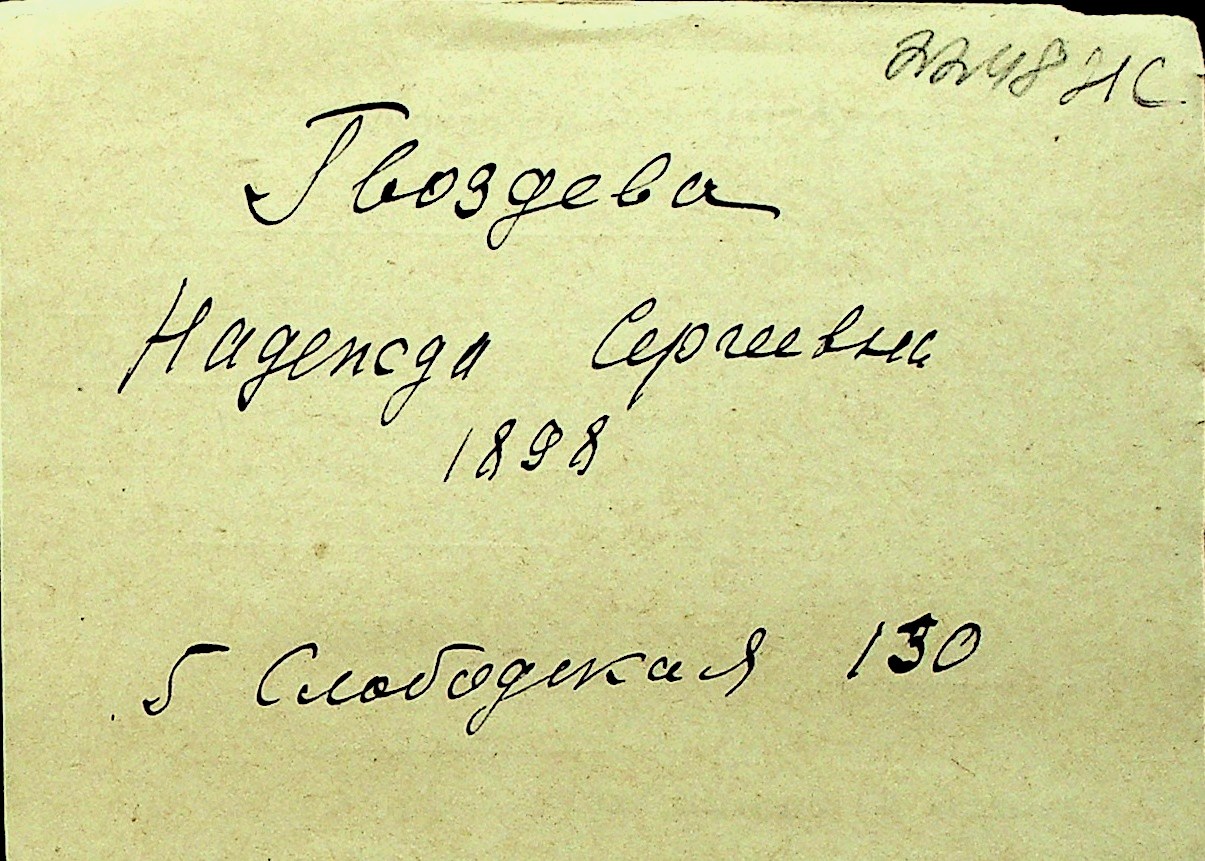 2248 НС
Гвоздева
Надежда Сергеевна
1898
Б Слободская 130